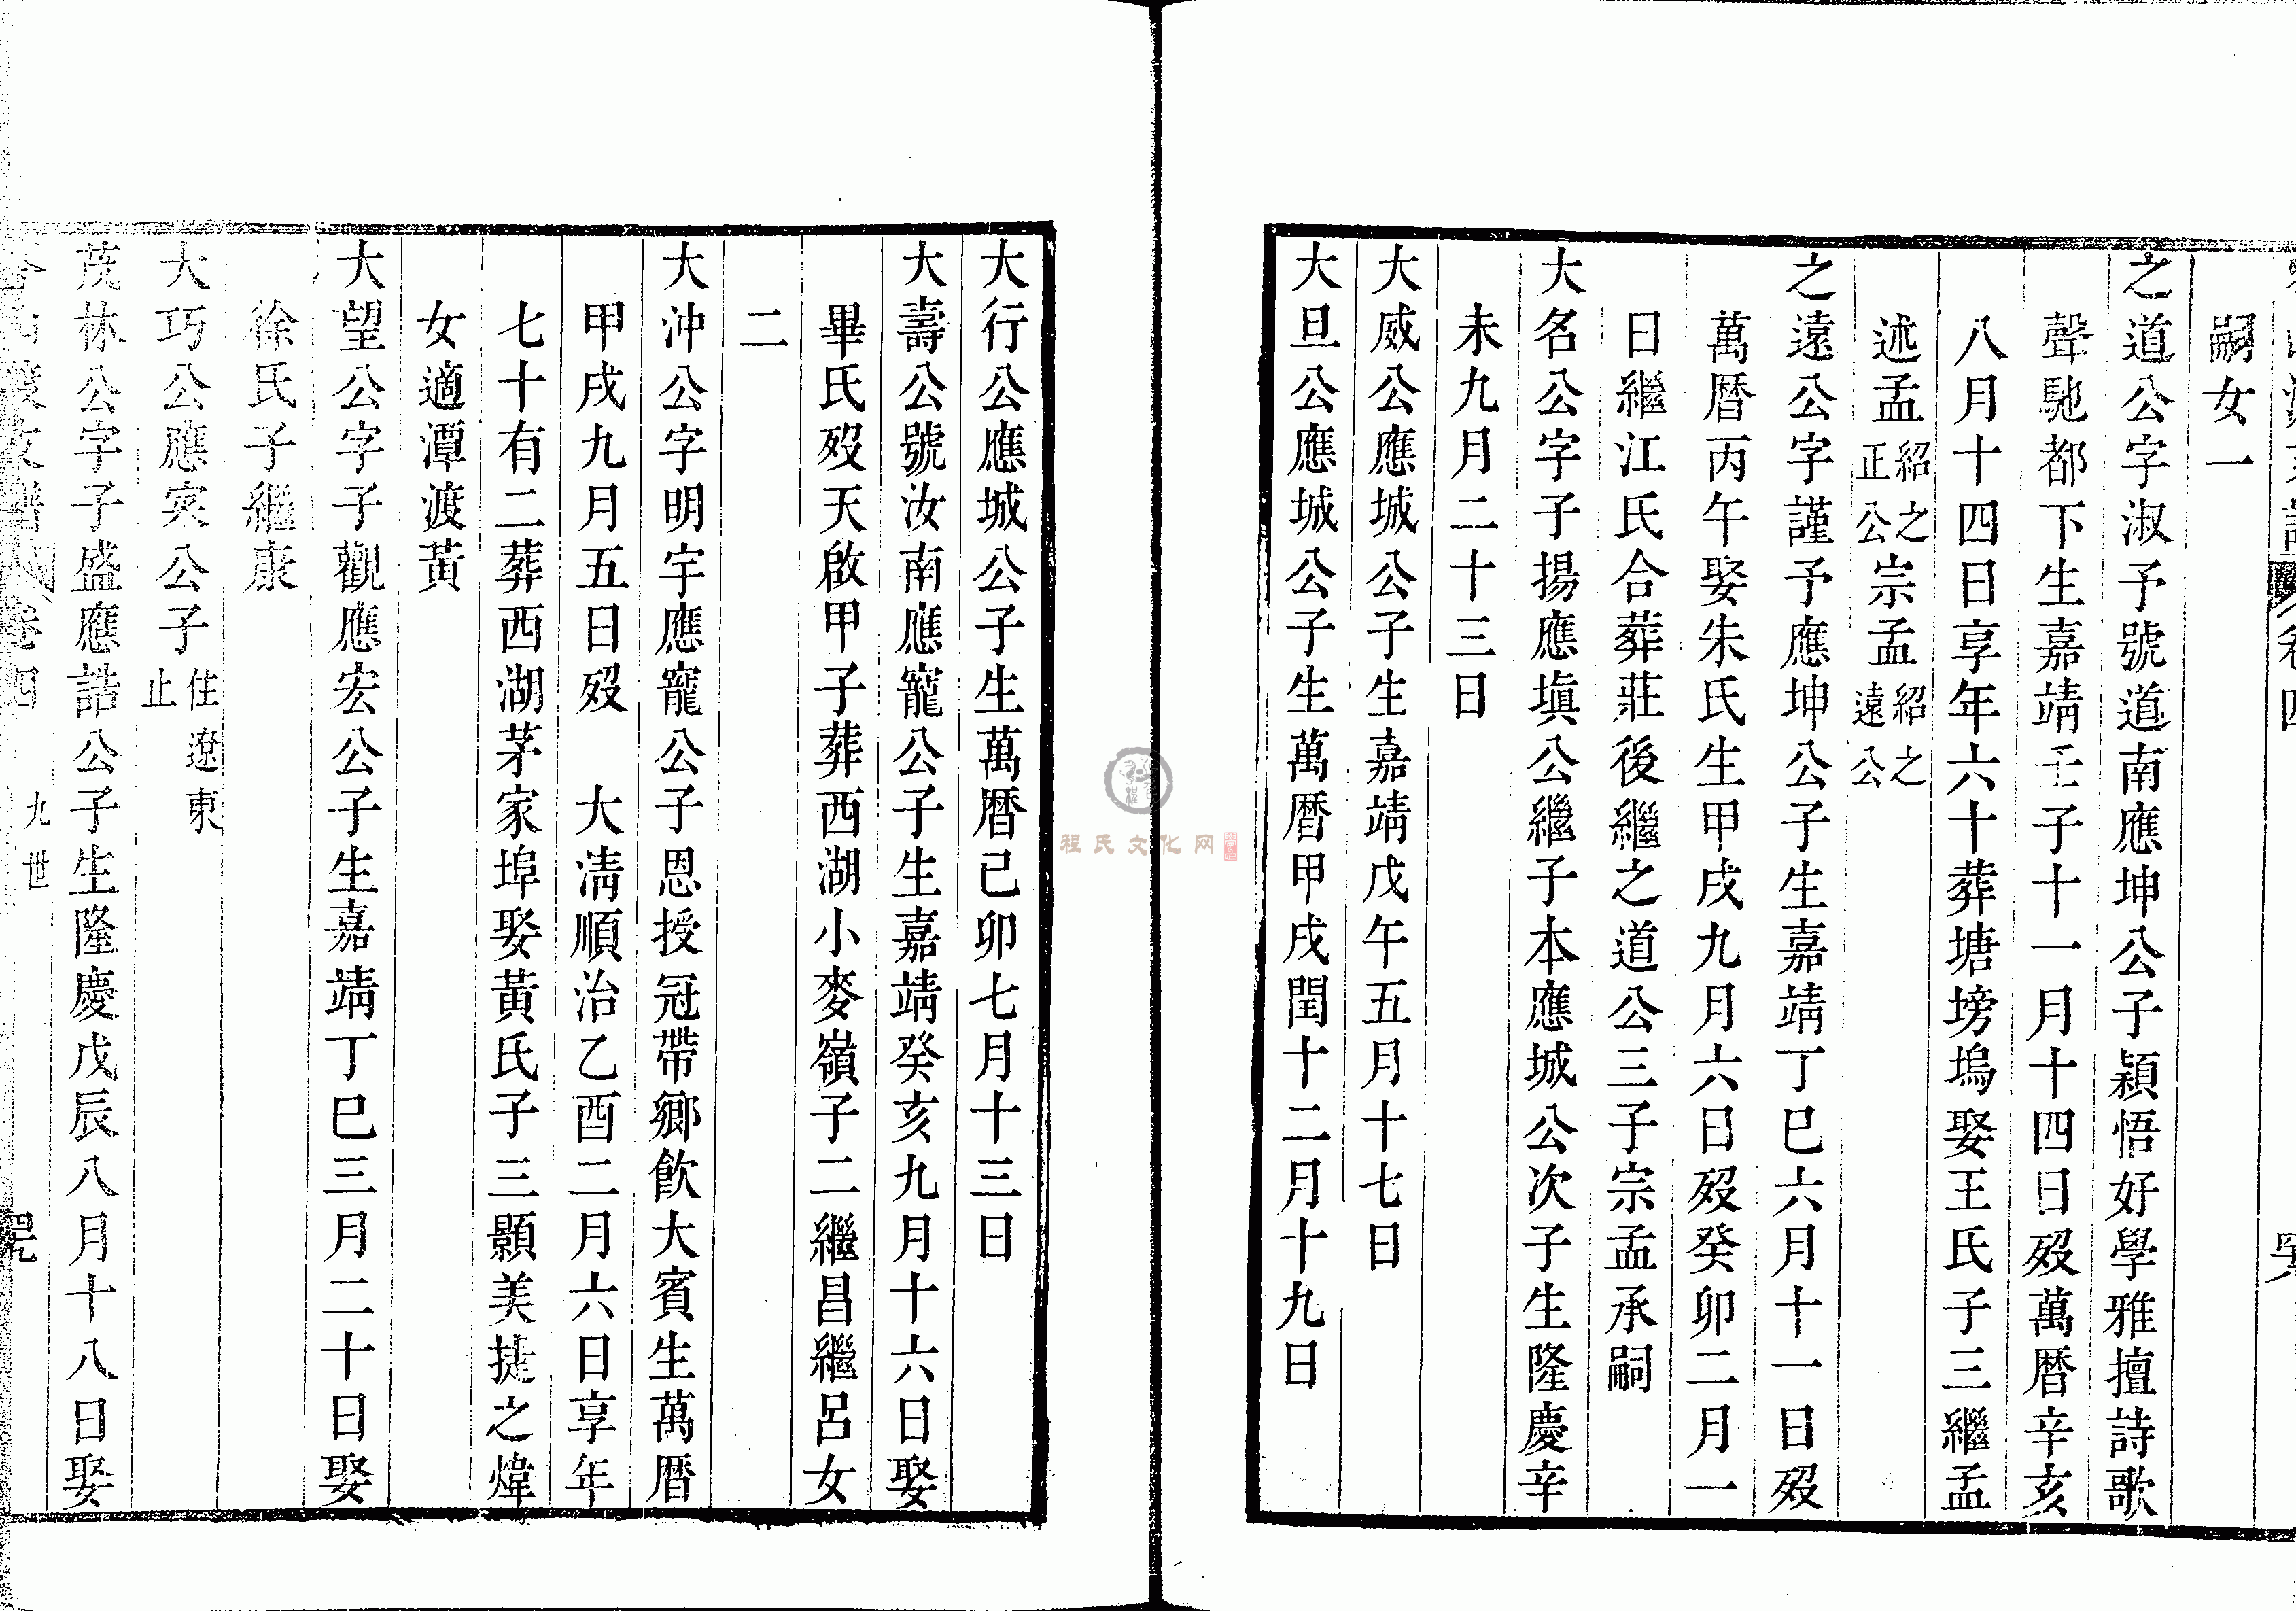 嗣女一
之道公字淑予號道南應坤公子穎悟好學雅擅詩歌
聲馳都下生嘉靖壬子十一月十四日歿萬曆辛亥
八月十四日享年六十葬塘塝塢娶王氏子三繼孟
述孟紹之正公宗孟紹之遠公
之遠公字謹予應坤公子生嘉靖丁巳六月十一日歿
萬曆丙午娶朱氏生甲戌九月六日歿癸卯二月一
日繼江氏合葬莊後繼之道公三子宗孟承嗣
大名公字子揚應塡公繼子本應城公次子生隆慶辛
未九月二十三日
大威公應城公子生嘉靖戊午五月十七日
大旦公應城公子生萬曆甲戌閏十二月十九日
大行公應城公子生萬曆己卯七月十三日
大壽公號汝南應寵公子生嘉靖癸亥九月十六日娶
畢氏歿天啟甲子葬西湖小麥嶺子二繼昌繼呂女
二
大沖公字明宇應寵公子恩授冠帶鄉飲大賓生萬曆
甲戌九月五日歿 大淸順治乙酉二月六日享年
七十有二葬西湖茅家埠娶黃氏子三顥美㨗之煒
女適潭渡黃
大望公字子觀應宏公子生嘉靖丁巳三月二十日娶
徐氏子繼康
大巧公應宲公子住遼東止
茂林公字子盛應誥公子生隆慶戊辰八月十八日娶
卷四 九世
程氏文化网